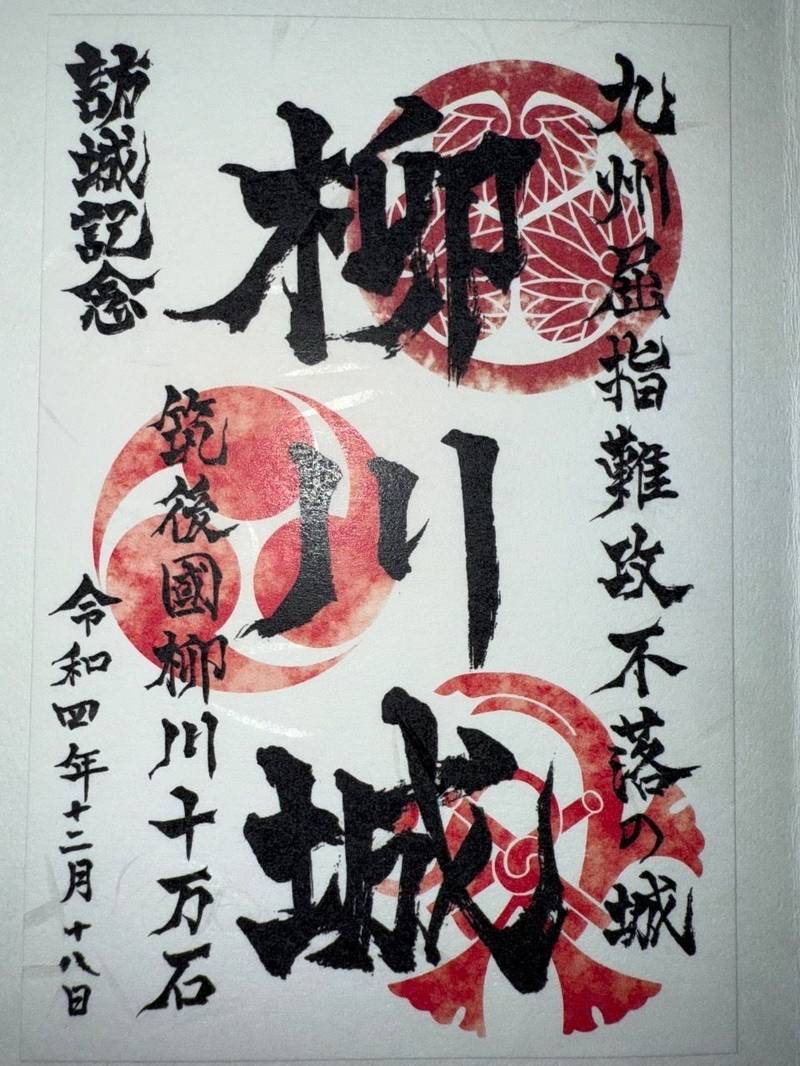 九州屈指難攻不落の城
柳川城
筑後國柳川十万石
訪城記念
令和四年十二月十八日